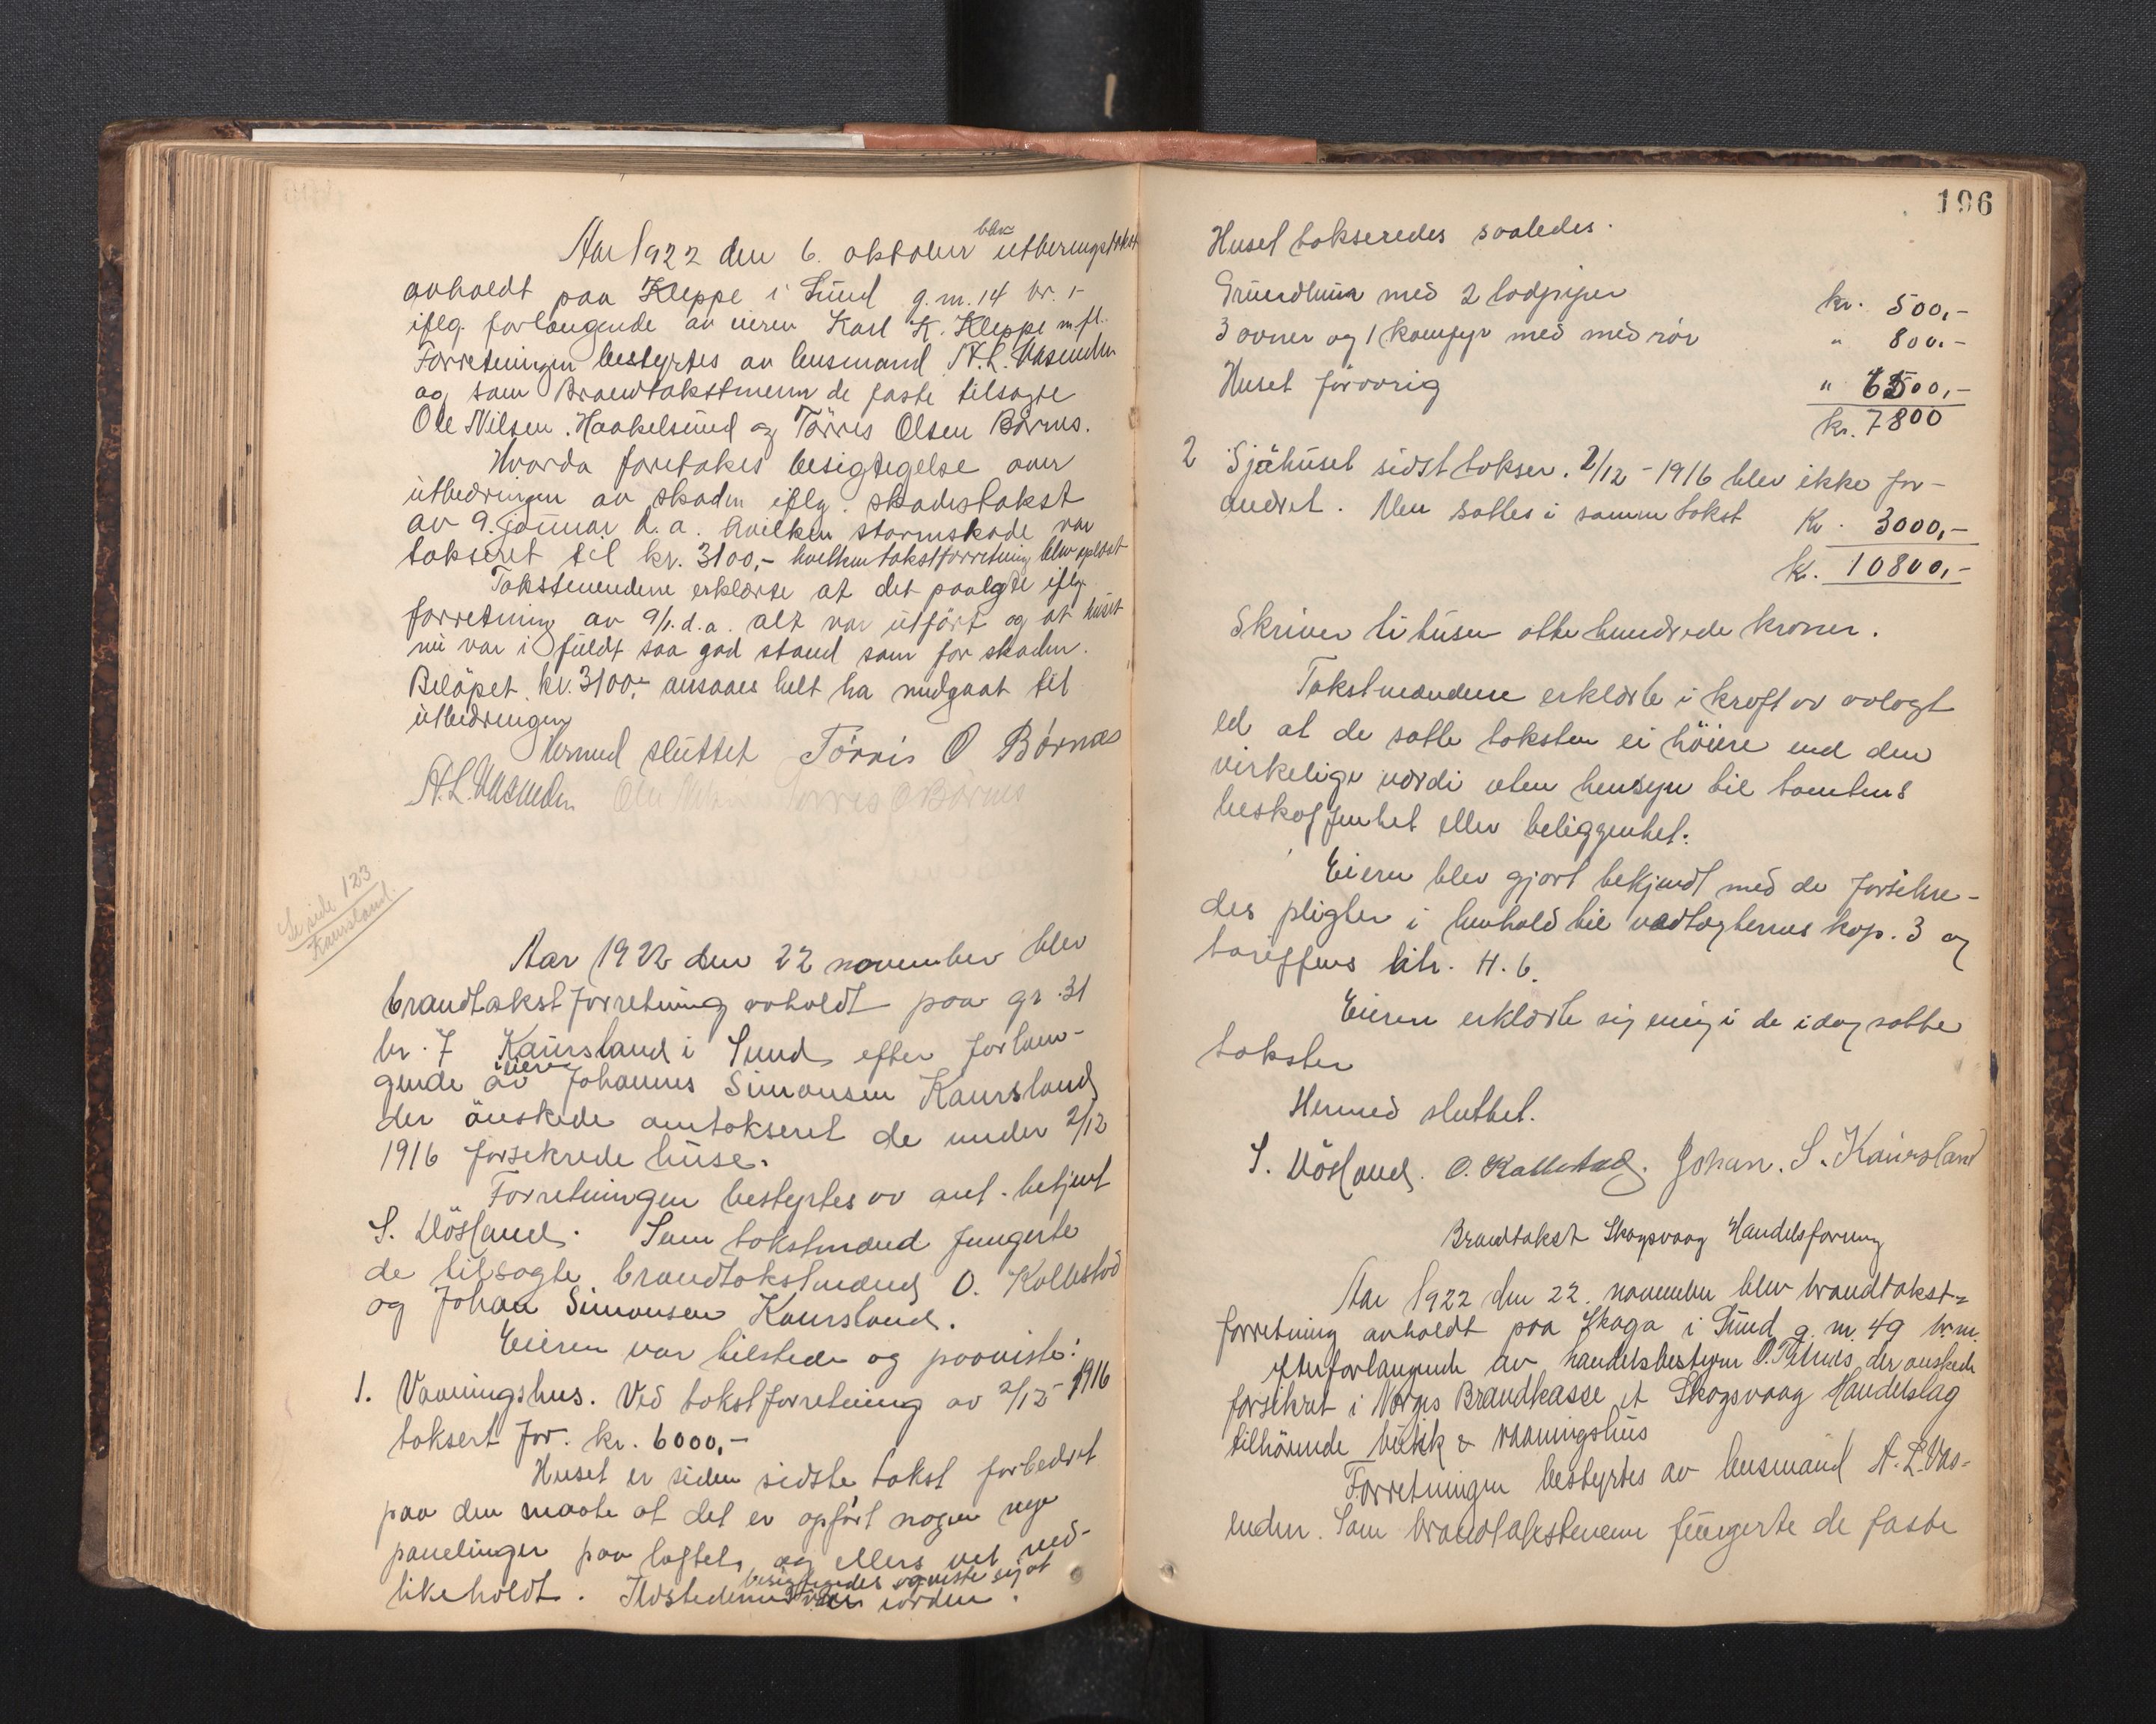 Aar 1922 den 6. oktober blev utbedringstakst
avholdt paa Kleppe i Sund g. nr. 14 br. 1
iflg. forlangende av eieren Karl K. Kleppe m. fl.
Forretningen bestyrtes av lensmand A. L. Vasenden
og som Brandtakstmenn de faste tilsagte
Ole Nilsen Haakelsund og Törris Olsen Börnes.
Hvorda foretokes besigtegelse over
utbedringen av skaden iflg. skadestakst
av 9. januar d. a. hvilken stormskade var
taksert til kr. 3100,- hvilken takstforretning blev oplæst
Takstmendene erklærte at det paalagte iflg.
forretning av 9/1. d. a. alt var utført og at huset
nu var i fuldt saa god stand som før skaden.
Belöpet kr. 3100,- ansaaes helt ha medgaat til
utbedringen
Hermed sluttet Törris O Börnes
A. L. Vasenden Ole Törris O Börnes
Se side 123
Kausland.
Aar 1922 den 22 november blev
brandtakstforretning avholdt paa gr. 31
br. 7 Kausland i Sund efter forlan-
gende av eieren Johannes Simonsen Kausland
der önskede omtakseret de under 2/12
1916 forsekrede huse.
Forretningen bestyrtes av aut. betjent
S. Lösland. Som takstmænd fungerte
de tilsagte brandtakstmænd O. Kallestad
og Johan Simonsen Kausland.
Eieren var tilstede og paaviste:
1. Vaaningshus. Ved takstforretning av 2/12 1916
taksert for kr. 6000,-
Huset er siden sidste takst forbedret
paa den maate at det er opført nogen nye
panelinger paa loftet, og ellers vel ved-
likeholdt. Ildstederne besigtigedes og viste sig at være iorden.
196
Huset takseredes saaledes.
Grundmur med 2 lodpiper kr. 500,-
3 ovner og 1 komfyr med med rör " 800.-
Huset forövrig " 6500,-
kr. 7800
2 Sjöhuset sidst takser. 2/12 - 1916 blev ikke for-
andret. Men sattes i samme takst kr. 3000,-
kr. 10800,-
Skriver ti tusen otte hundrede kroner.
Takstmændene erklærte i kraft av avlagt
ed at de satte taksten ei höiere end den
virkelige værdi uten hensyn til tomtens
beskaffenhet eller beliggenhet.
Eieren blev gjort bekjendt med de forsikre-
des pligter i henhold til vedtægternes kap. 3 og
tariffens litr. H. 6.
Eieren erklærte sig enig i de idag satte
takster
Hermed sluttet.
S. Lösland. O. Kallestad. Johan. S. Kausland
Brandtakst Skogsvaag Handelsforning
Aar 1922 den 22. november blev brandtakst-
forretning avholdt paa Skoga i Sund g. nr. 49 br. nr.
efter forlangende av handelsbestyrer O. Tellnes der önskede
forsikret i Norges Brandkasse et Skogsvaag Handelslag
tilhörende butik & vaaningshus
Forretningen bestyrtes av lensmand A. L. Vas-
enden. Som brandtakstmenn fungerte de faste